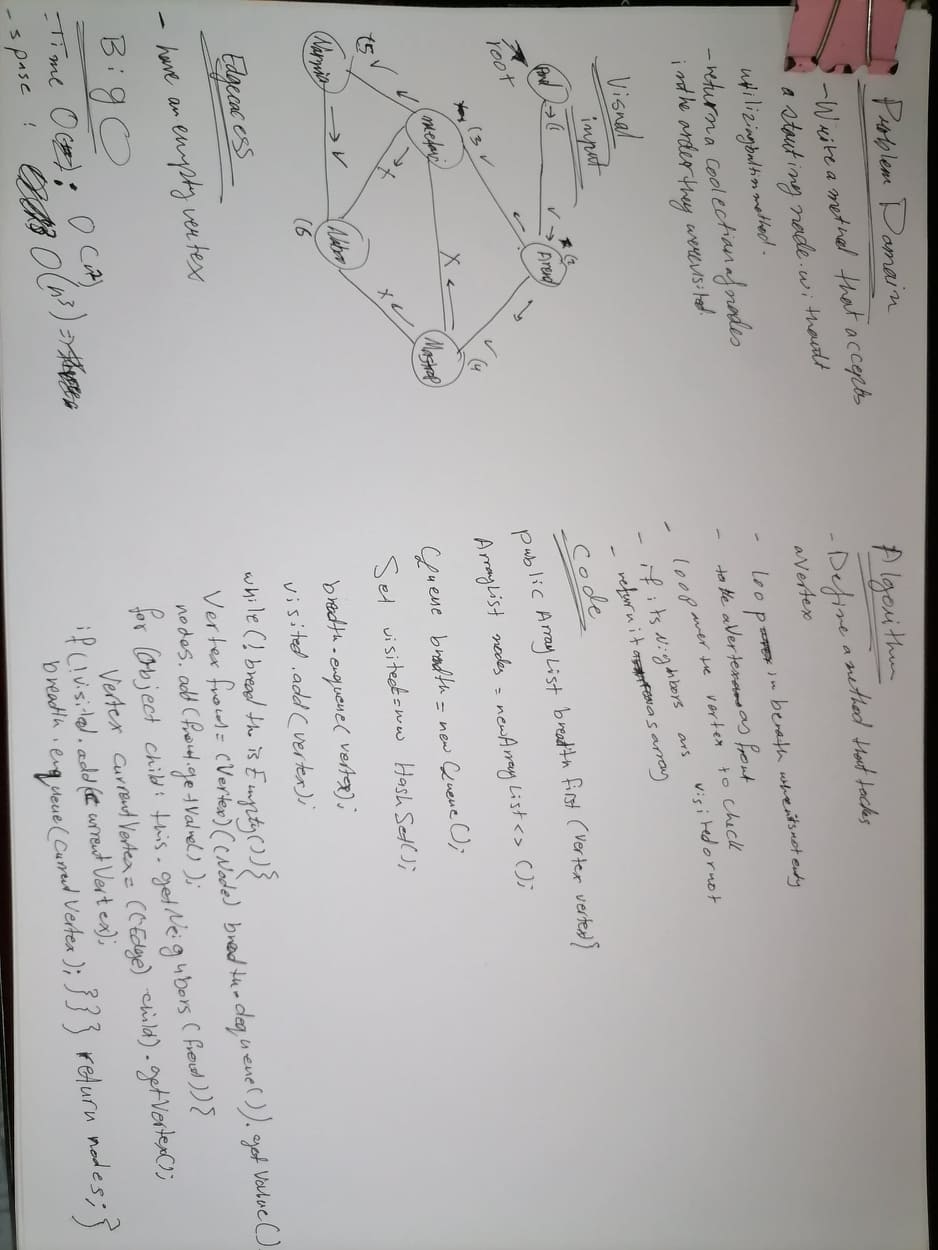 Problem Domain
- Write a method that accepts
a stating node. without
utilizing built in method.
- return a collection of nodes
in the order they were visited.
Visual
input
root
→(1
Arend
(2
(3
metroville
(4
Monstropolis
(5
Narnia
(6
Naboo
Edgecases
- have an empty vertex
Big O
- Time O : O(n²)
- spase : O(n³) =>
Algorithm
- Define a method that tacks
a Vertex
- loop in breath when its not emty
- take a Vertex as front
- loop over the vertex to check
- if its nighbors are visited or not
- return it as array
Code
public ArrayList breadth first (vertex vertex){
ArrayList nodes = new ArrayList<>();
Queue breadth = new Queue();
Set visited = new HashSet();
breadth.enqueue(vertex);
visited add(vertex);
while(! breadth isEmpty()){
Vertex front = (Vertex)((Node) breadth.dequeue()).getValue()
nodes.add(front.getValue());
for (Object child: this.getNeighbors(front)){
Vertex currentVertex = ((Edge) child).getVertex();
if(!visited.add(currentVertex);
breadth.enqueue(currentVertex);}}} return nodes;}